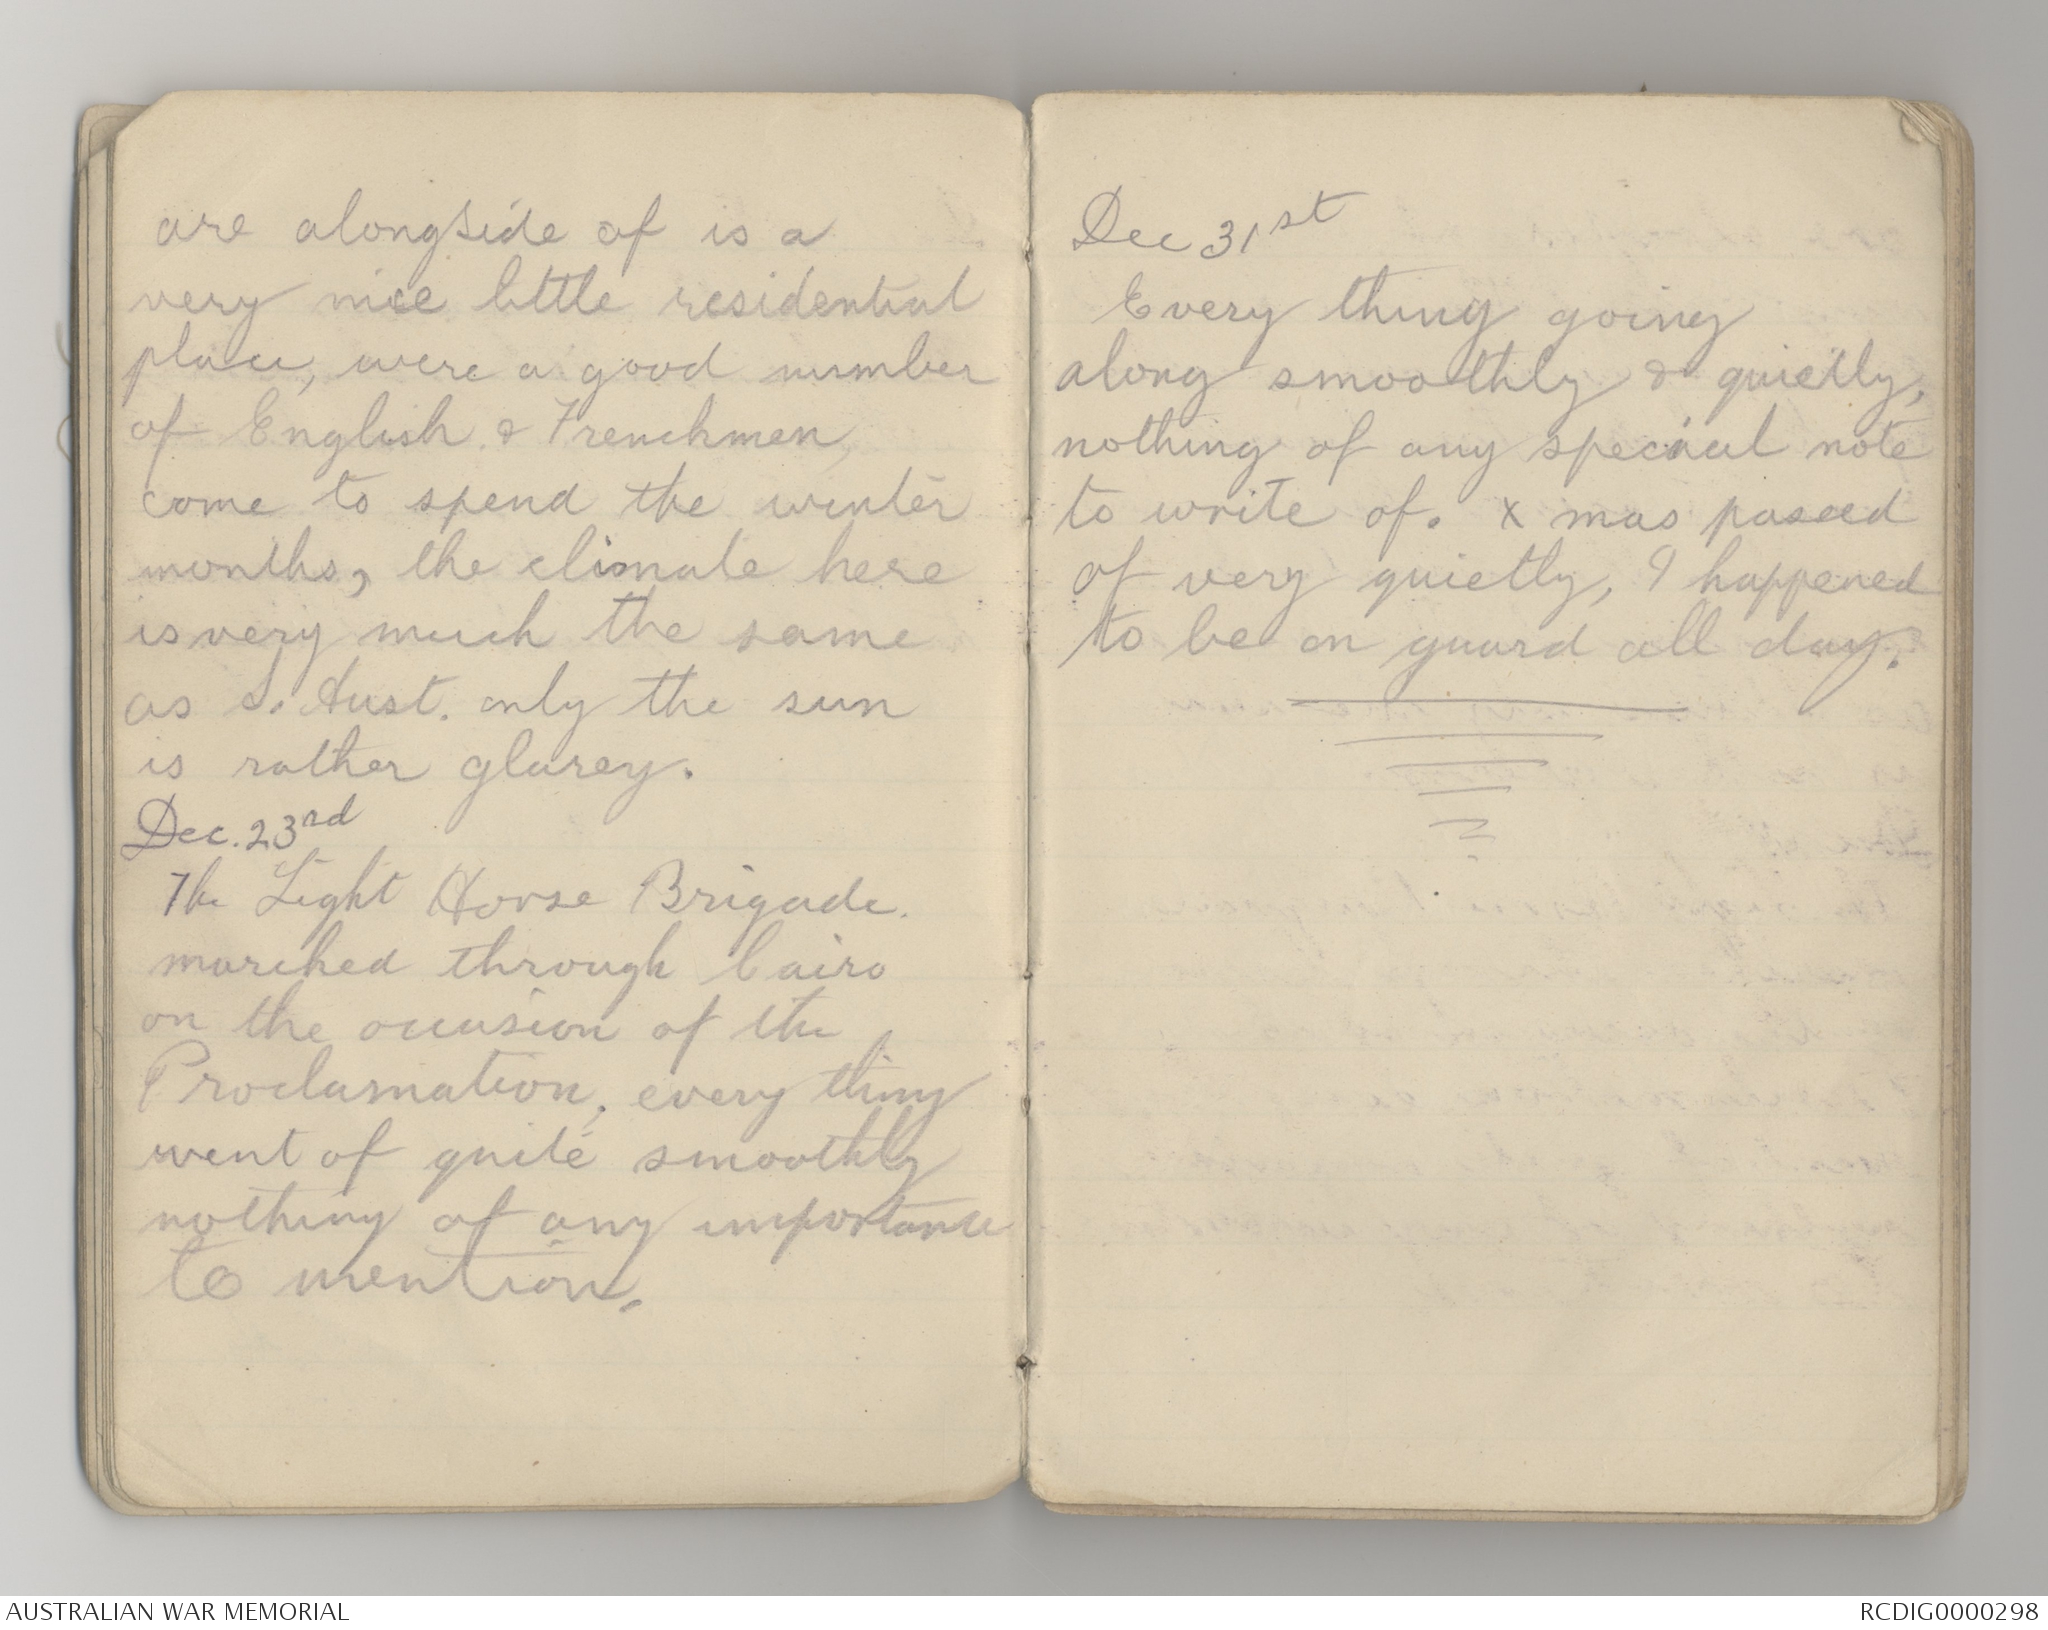 are alongside of is a
very nice little residential
place, were a good number
of English & Frenchmen,
come to spend the winter
months, the climate here
is very much the same
as S. Aust. only the sun
is rather glarey.
Dec. 23rd
The Light Horse Brigade.
marched through Cairo
on the occasion of the
Proclamation, every thing
went of quite smoothly
nothing of any importance
to mention.
Dec 31st
Every thing going
along smoothly & quietly,
nothing of any special note
to write of. X mas passed
of very quietly, I happened
to be on guard all day.
AUSTRALIAN WAR MEMORIAL
RCDIG0000298